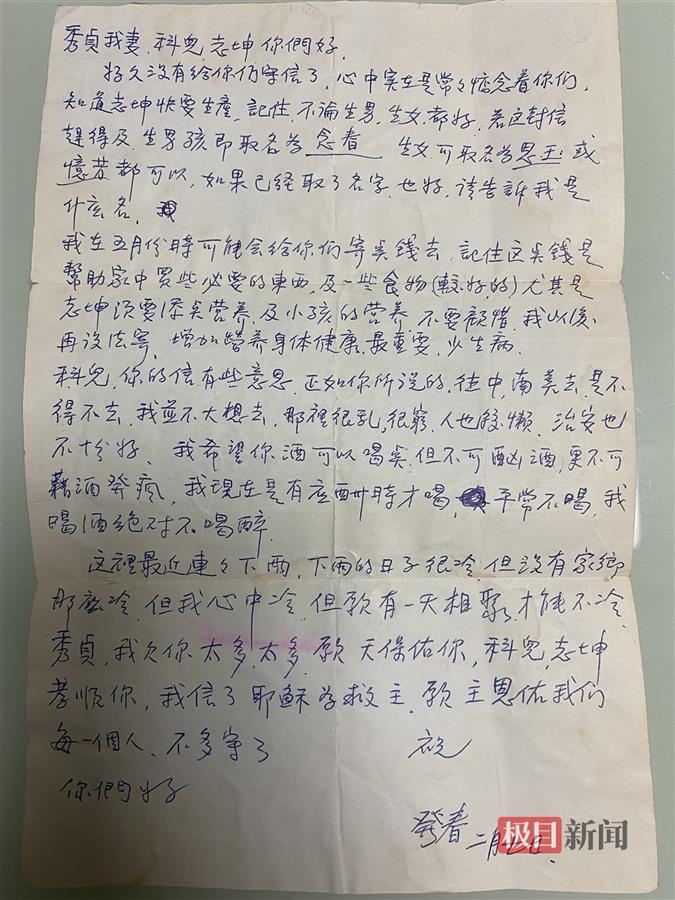 秀貞我妻.科兒.志坤你們好.
好久没有給你们写信了,心中实在是常々惦念着你们,
知道志坤快要生產,記住,不論生男,生女,都好,若这封信
趕得及,生男孩即取名為念春 生女可取名為思玉或
憶芳都可以,如果已经取了名字也好,請告訴我是
什広名,
我在五月份時可能会给你们寄㒰錢去,記住这㒰錢是
幫助家中買些必要的東西,及一些食物(較好的)尤其是
志坤须要添㒰营养,及小孩的营养,不要顧惜,我以後
再设法寄,增加营养身体健康最重要,少生病.
科兒,你的信有些意思,正如你所說的,往中,南美去,是不
得不去,我並不大想去,那裡很乱,很窮,人也較懒,治安也
不十份好,我希望你酒可以喝㒰,但不可酗酒,更不可
藉酒發瘋,我現在是有应酬時才喝,平常不喝,我
喝酒绝对不喝醉.
这裡最近連々下雨,下雨的日子很冷,但没有家鄉
那麽冷,但我心中冷,但願有一天相聚,才能不冷.
秀貞,我欠你太多,太多,願天保佑你,科兒志坤
孝順你,我信了耶穌為救主,願主恩佑我们
每一個人,不多写了 祝
你們好
發春 二月七日.
极目新闻